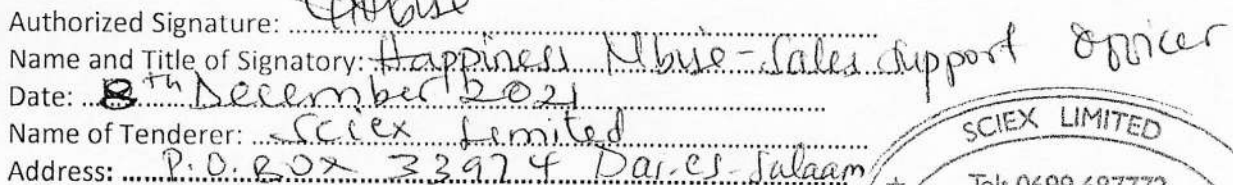 Authorized Signature:
Name and Title of Signatory: Happiness Mbise - Sales Support Officer
Date: 8th December 2021
Name of Tenderer: Sciex Limited
Address: P.O. BOX 33974 Dar-es-Salaam
SCIEX LIMITED
Tel: 0699 687772